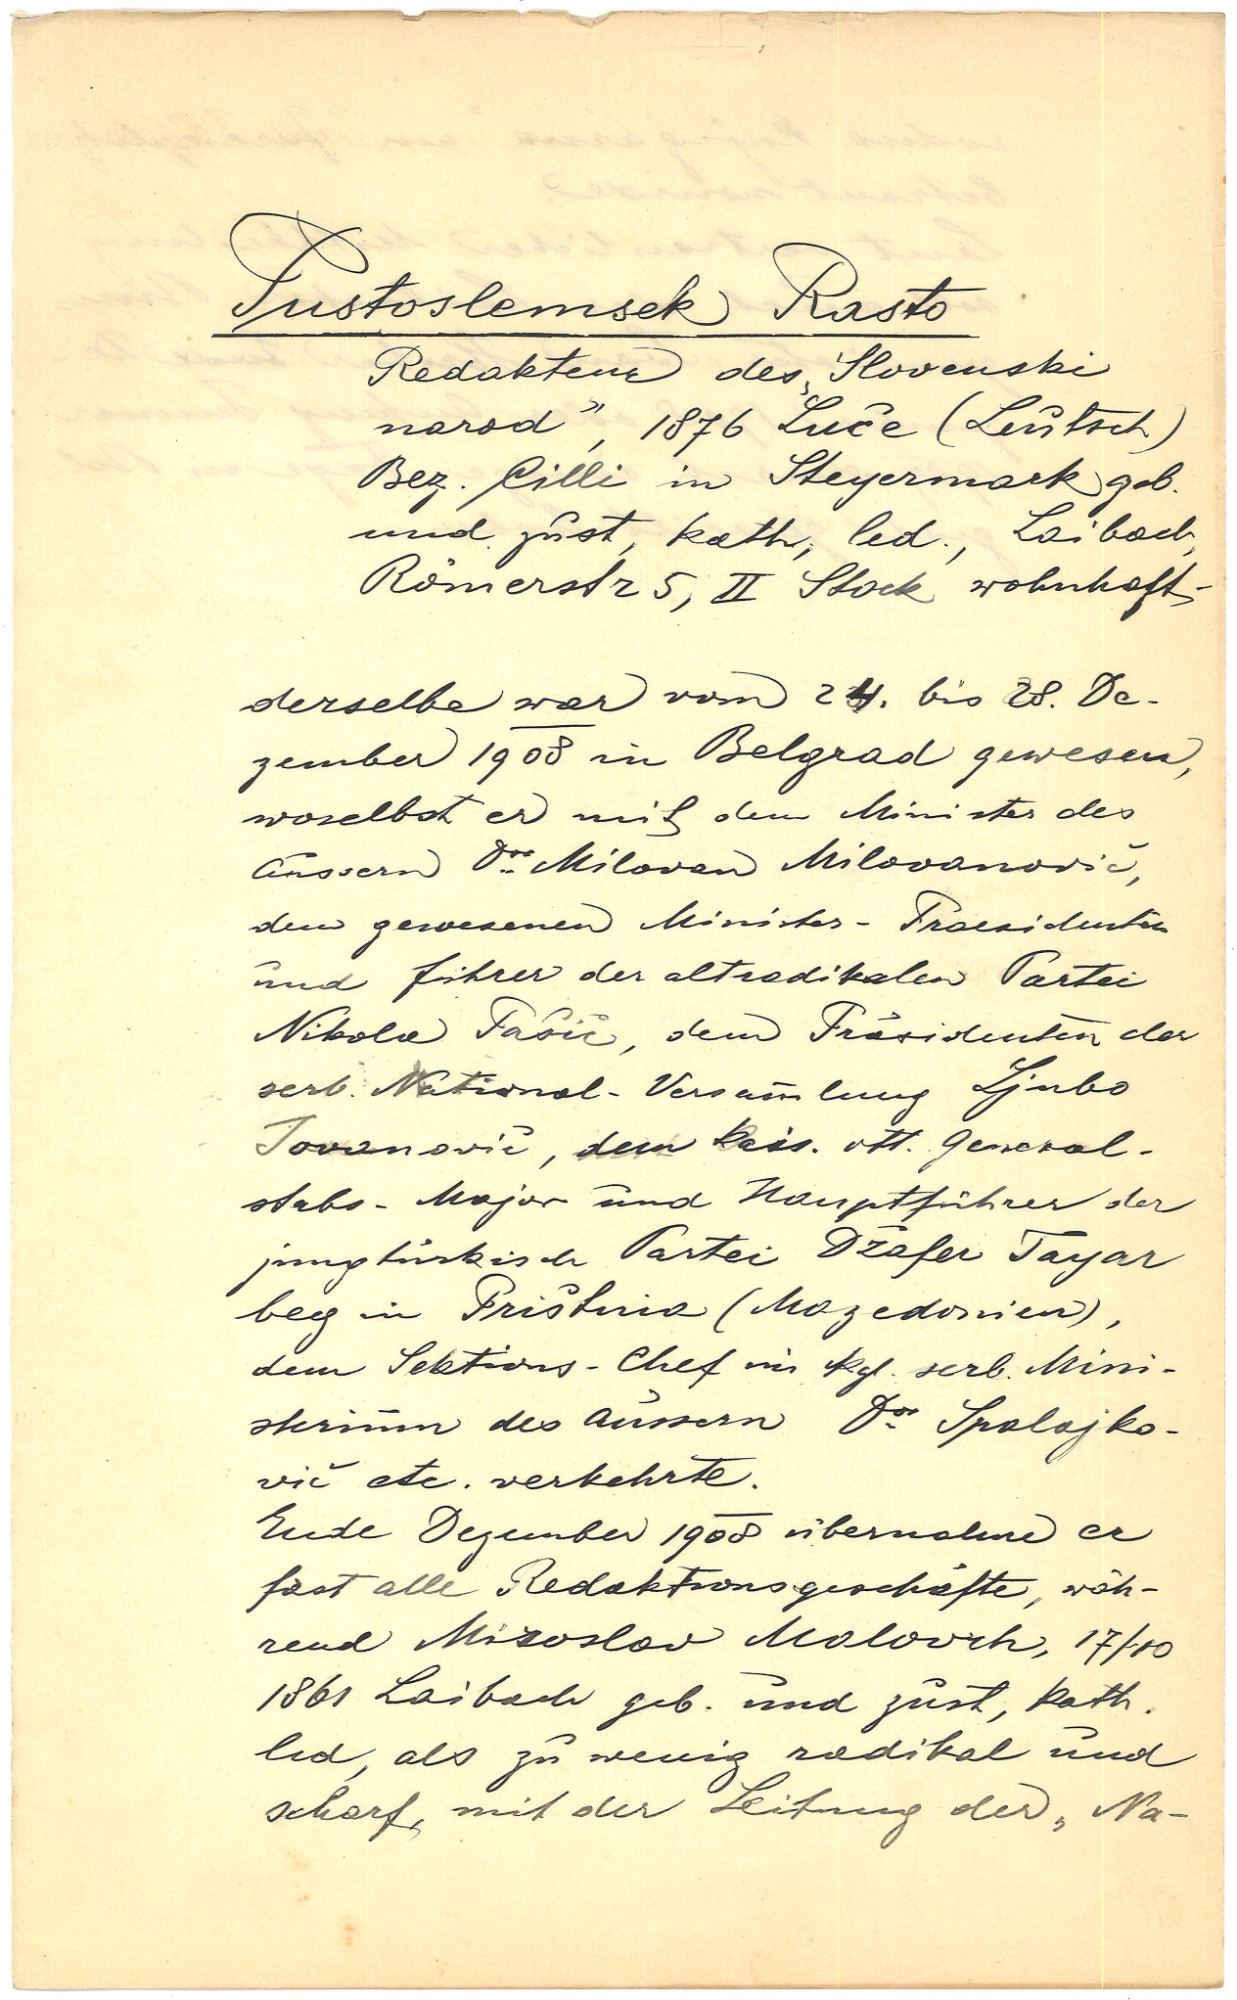 Pustoslemsek Rasto
Redakteur des „Slovenski
narod", 1876 Luče (Leutsch)
Bez. Cilli in Steyermark geb.
und zust, kath, led., Laibach,
Römerstr 5, II Stock wohnhaft,
derselbe war vom 24. bis 28. De-
zember 1908 in Belgrad gewesen,
woselbst er mit dem Minister des
äussern Dor Milovan Milovanović,
dem gewesenen Minister-Praesidenten
und führer der altradikalen Partei
Nikola Pašić, dem Präsidenten der
serb. National-Versam̄lung Ljubo
Jovanović, dem kais. ott. General-
stabs-Major und Hauptführer der
jungtürkisch Partei Džafer Tayar
beg in Priština (Mazedonien),
dem Sektions-Chef im kgl. serb. Mini-
sterium des äussern Dor Spalajko-
vić etc. verkehrte.
Ende Dezember 1908 übernahm er
fast alle Redaktionsgeschäfte, wäh-
rend Miroslav Malovrh, 17/10
1861 Laibach geb. und zust, kath.
led, als zu wenig radikal und
scharf, mit der Leitung der „Na-